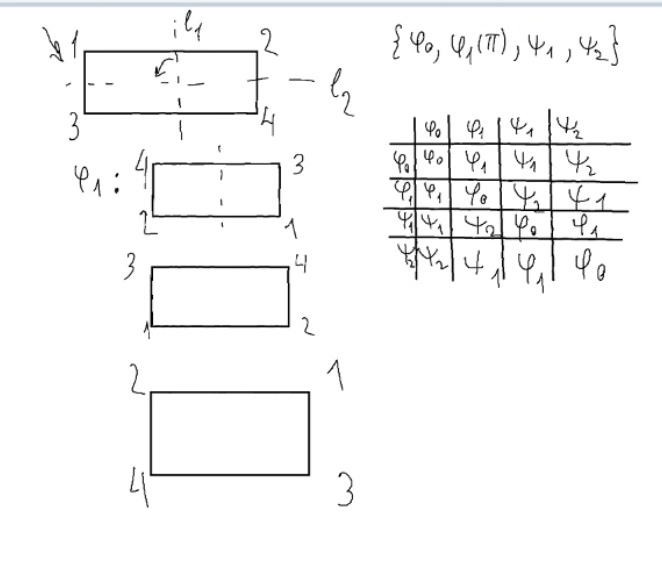 l₁
1 2
l₂
3 4
φ₁ :
4 3
2 1
3 4
1 2
2 1
4 3
{φ₀, φ₁(π), ψ₁, ψ₂}
φ₀ φ₁ ψ₁ ψ₂
φ₀ φ₀ φ₁ ψ₁ ψ₂
φ₁ φ₁ φ₀ ψ₂ ψ₁
ψ₁ ψ₁ ψ₂ φ₀ φ₁
ψ₂ ψ₂ ψ₁ φ₁ φ₀